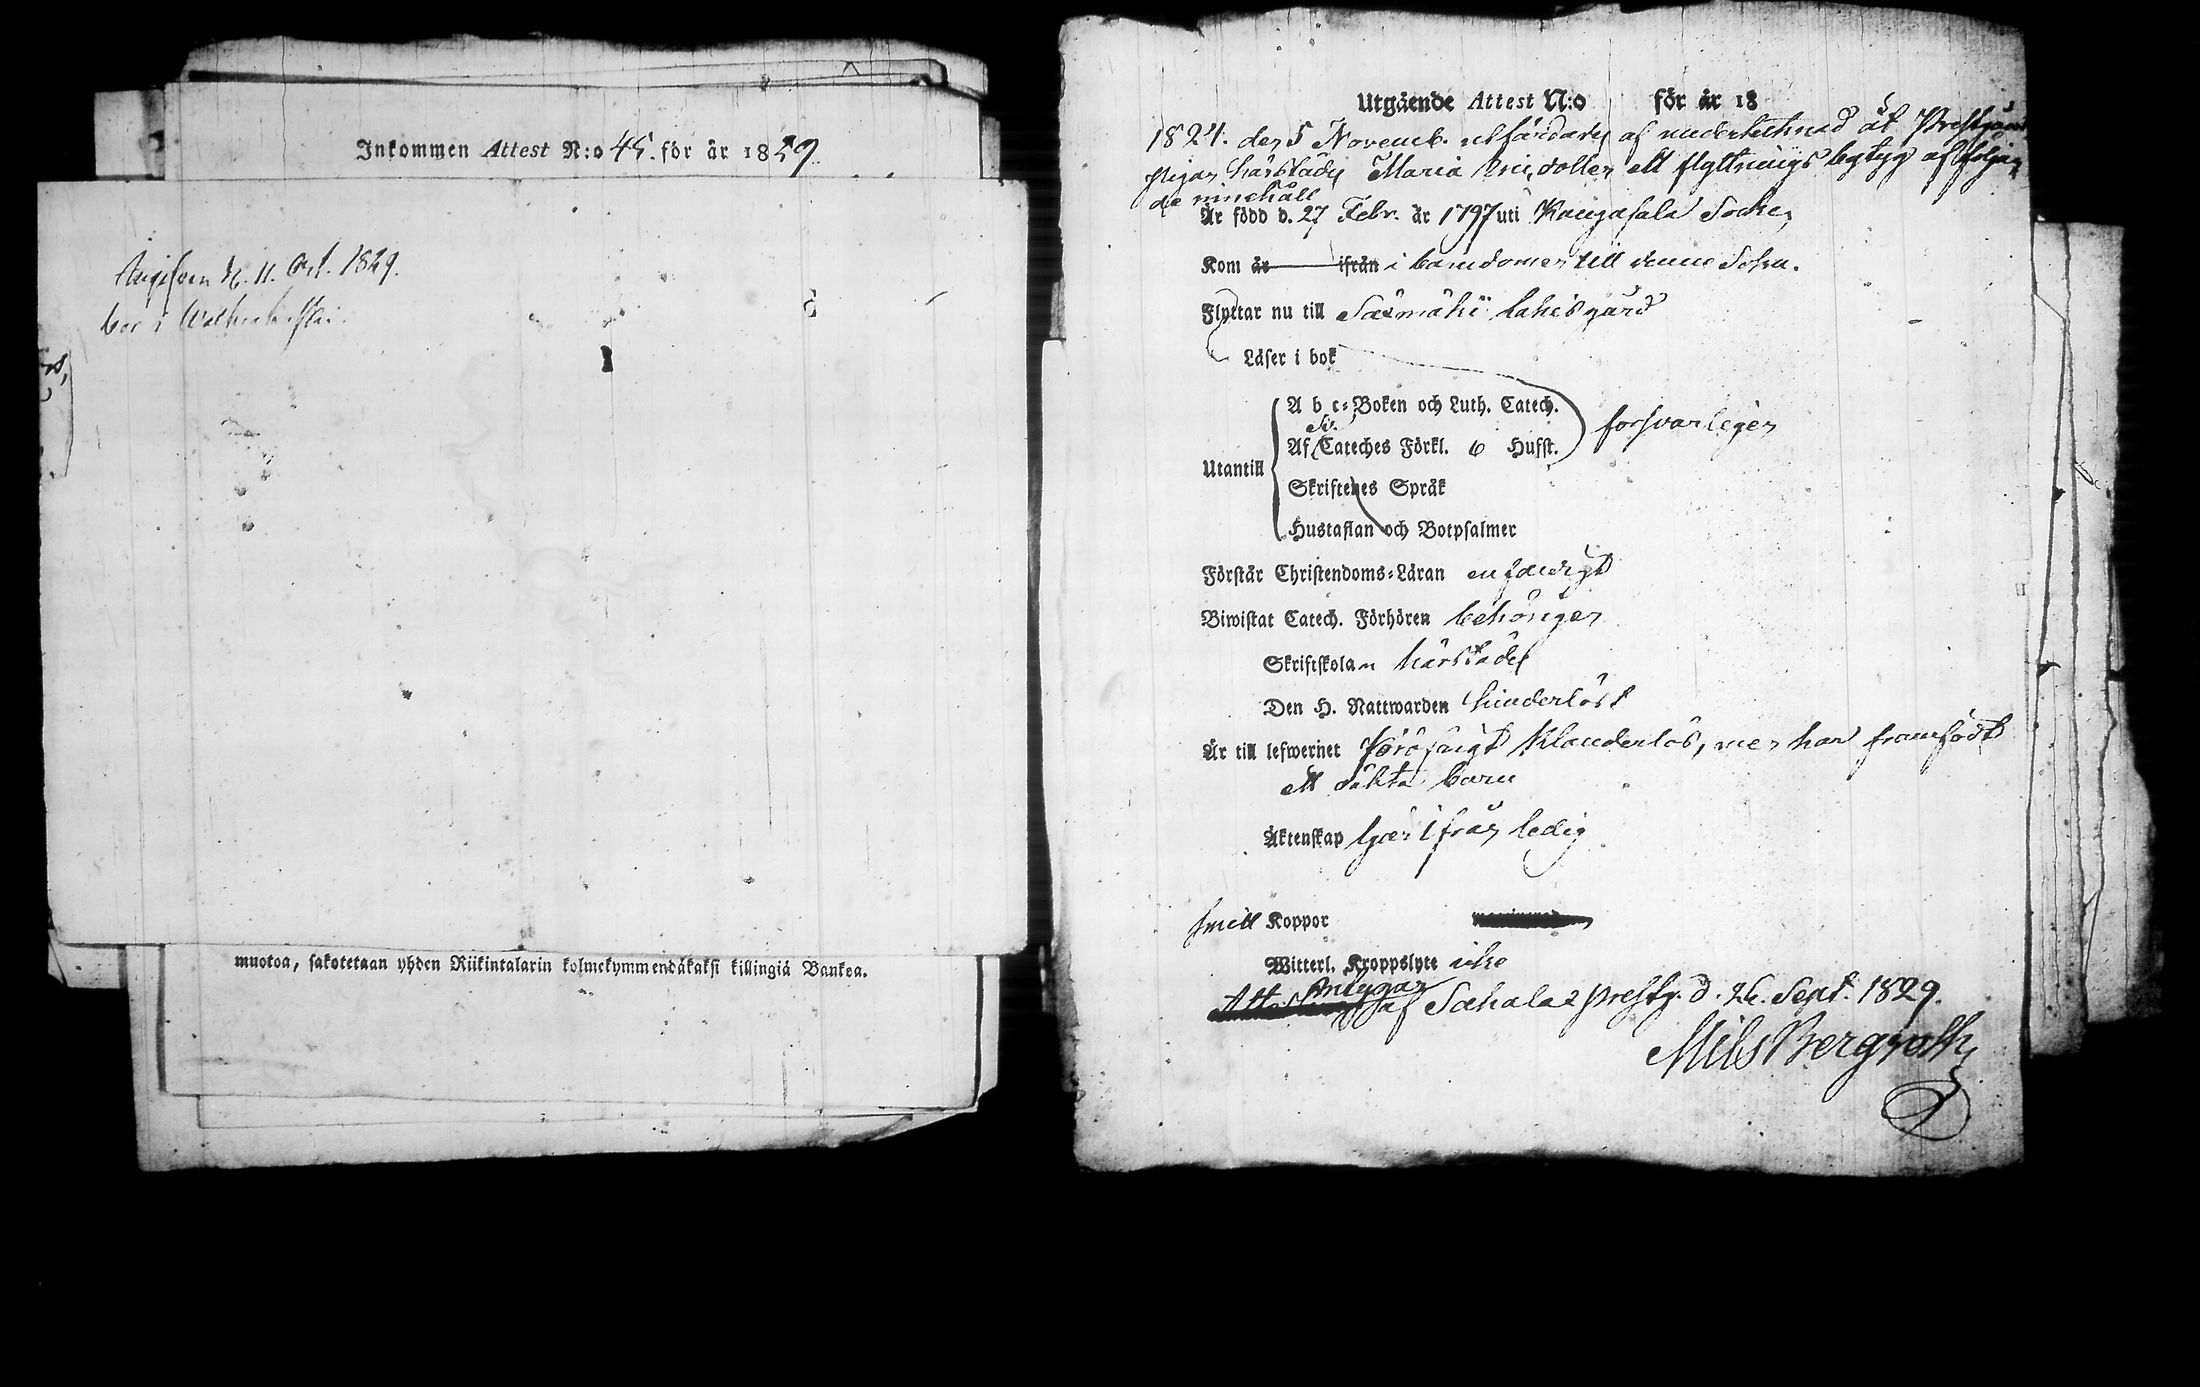 Inkommen Attest N:o 45. för år 1829
d. 11. Oct. 1829.
bor i
muotoa, sakotetaan yhden Riikintalarin kolmekymmendäkaksi killingiä Bankoa.
Utgående Attest N:o för år 18
1824. den 5 Novemb. utfärdades af undertecknad åt Prestgårds
pigan härstädes Maria ett flyttnings betyg af följan
de innehåll
Är född d. 27 Febr. år 1797 uti Kangasala Socken
Kom år ifrån i barndomen till denna Sokn.
Flyttar nu till Säämäki Lahis gård
Läser i bok
A b c-Boken och Luth. Catech.
Sv.
Af Cateches Förkl. 6 Husst. försvarligen
Utantill
Skriftenes Språk
Hustaflan och Botpsalmer
Förstår Christendoms-Läran enfaldigt
Biwistat Catech. Förhören behörigen
Skriftskolan härstädes
Den H. Nattwarden hinderlöst
Är till lefwernet klanderlös, men har framfödt
ett oäkta barn
Äktenskap här ifrån ledig
Koppor
Witterl. Kroppslyte icke
af Sahalax prestg. d. 26. Sept. 1829.
Nils Bergroth